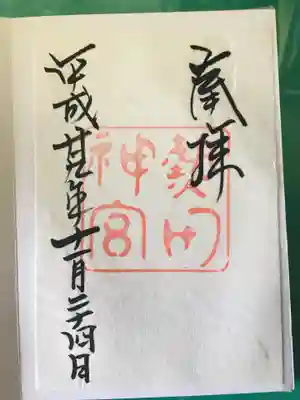 奉拝
熱田
神宮
平成廿年十一月二十四日